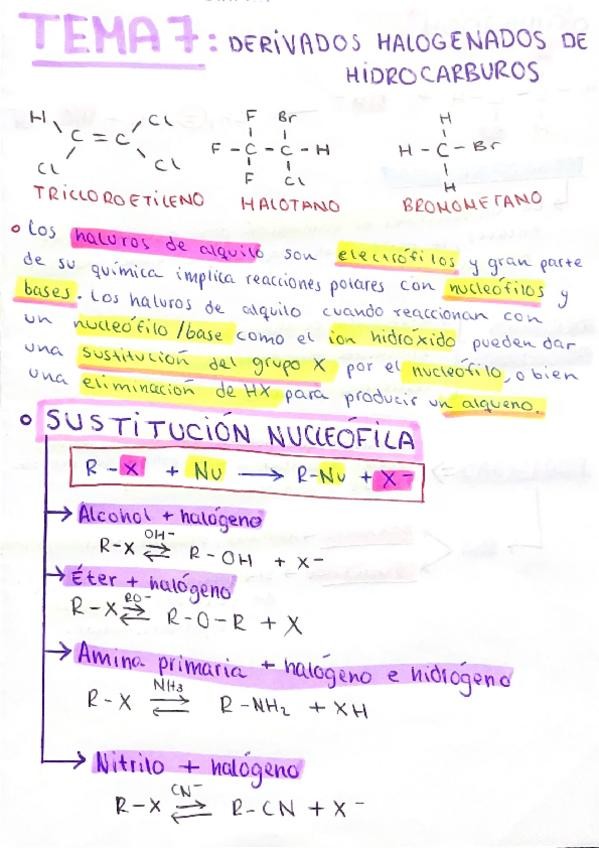 TEMA 7: DERIVADOS HALOGENADOS DE
HIDROCARBUROS
H Cl
C = C
Cl Cl
TRICLOROETILENO
F Br
F - C - C - H
F Cl
HALOTANO
H
H - C - Br
H
BROMOMETANO
Los haluros de alquilo son electrófilos y gran parte
de su química implica reacciones polares con nucleófilos y
bases. Los haluros de alquilo cuando reaccionan con
un nucleófilo/base como el ion hidróxido pueden dar
una sustitución del grupo X por el nucleófilo, o bien
una eliminación de HX para producir un alqueno.
SUSTITUCIÓN NUCLEÓFILA
R - X + Nu → R-Nu + X⁻
→ Alcohol + halógeno
R-X ⇌ R-OH + X⁻
OH⁻
→ Éter + halógeno
R-X ⇌ R-O-R + X
RO⁻
→ Amina primaria + halógeno e hidrógeno
R-X ⇌ R-NH₂ + XH
NH₃
→ Nitrilo + halógeno
R-X ⇌ R-CN + X⁻
CN⁻